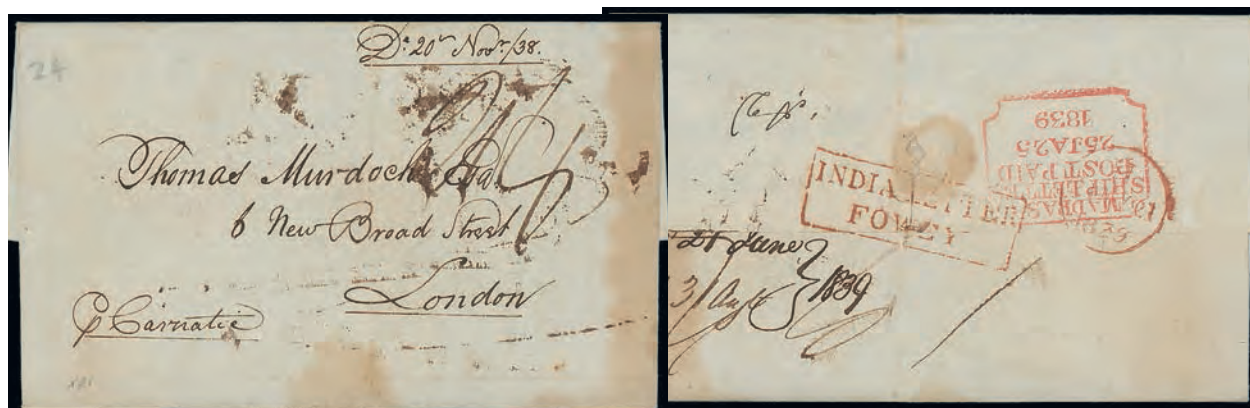 24
Dº 20th Novr/38.
Thomas Murdoch
6 New Broad Street
London
p Carnatic
INDIA LETTER
FOWEY
MADRAS
SHIP LETTER
POST PAID
25JA25
1839
21 June
3/Augt
1839